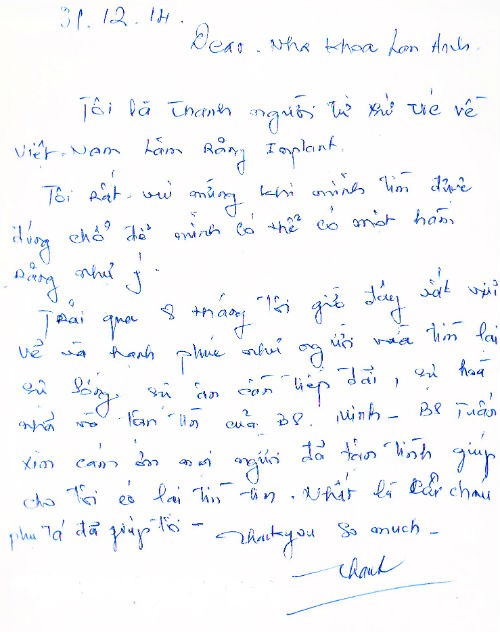 31.12.14.
Dear. Nha Khoa Lan Anh.
Tôi là Thanh người từ xứ Úc về
Việt-Nam làm Răng Implant.
Tôi rất vui mừng khi mình tìm được
đúng chổ để mình có thể có một hàm
răng như ý.
Trải qua 8 tháng tôi giờ đây rất vui
vẻ và hạnh phúc như người vừa tìm lại
sự sống, sự ân cần tiếp đải, sự hoà
nhã và tận tìn của BS. Minh - BS Tuấn
xin cám ơn mọi người đã tận tình giúp
cho tôi có lại tin. Nhất là các cháu
phụ tá đã giúp tôi - Thankyou so much -
Thanh